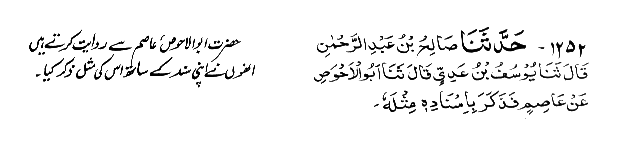 ۱۲۵۲ - حَدَّثَنَا صَالِحُ بْنُ عَبْدِ الرَّحْمٰنِ
قَالَ ثَنَا يُوسُفُ بْنُ عَدِيٍّ قَالَ ثَنَا أَبُو الْاَحْوَصِ
عَنْ عَاصِمٍ فَذَكَرَ بِاِسْنَادِهٖ مِثْلَهٗ -
حضرت ابو الاحوص، عاصم سے روایت کرتے ہیں
انھوں نے اپنی سند کے ساتھ اس کی مثل ذکر کیا۔